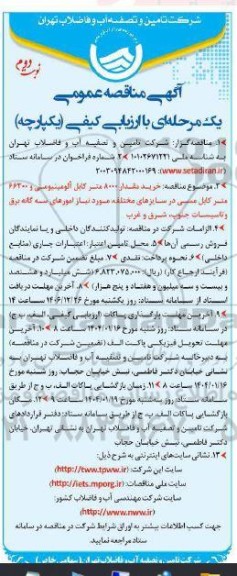 شرکت تامین و تصفیه آب و فاضلاب تهران
نوبت دوم
آگهی مناقصه عمومی
یک مرحله‌ای با ارزیابی کیفی (یکپارچه)
۱. مناقصه‌گزار: شرکت تامین و تصفیه آب و فاضلاب تهران
به شناسه ملی ۱۰۱۰۲۶۷۱۲۲۱ ۲. شماره فراخوان در سامانه ستاد
(www.setadiran.ir): ۲۰۰۳۰۹۴۸۴۲۰۰۰۱۶۹
۳. موضوع مناقصه: خرید مقدار ۸۰۰۰ متر کابل آلومینیومی و ۶۶۲۰۰
متر کابل مسی در سایزهای مختلف مورد نیاز امورهای سه گانه برق
و تاسیسات جنوب، شرق و غرب
۴. الزامات شرکت در مناقصه: تولیدکنندگان داخلی و یا نمایندگان
فروش رسمی آن‌ها ۵. محل تامین اعتبار: اعتبارات جاری (منابع
داخلی) ۶. نحوه پرداخت: نقدی ۷. مبلغ تضمین شرکت در مناقصه
(فرآیند ارجاع کار) (ریال): ۶.۸۲۳.۰۷۵.۰۰۰ (شش میلیارد و هشتصد
و بیست و سه میلیون و هفتاد و پنج هزار) ۸. آخرین مهلت دریافت
اسناد از سامانه ستاد: روز یکشنبه مورخ ۱۴۰۳/۱۲/۲۶ ساعت ۱۴
۹. آخرین مهلت بارگذاری پاکات ارزیابی کیفی، الف، ب، ج)
در سامانه ستاد: روز شنبه مورخ ۱۴۰۴/۰۱/۱۶ ساعت ۸ ۱۰. آخرین
مهلت تحویل فیزیکی پاکت الف (تضمین شرکت در مناقصه)
به دبیرخانه شرکت تامین و تصفیه آب و فاضلاب تهران به
نشانی خیابان دکتر فاطمی، نبش خیابان حجاب: روز شنبه مورخ
۱۴۰۴/۰۱/۱۶ ساعت ۸ ۱۱. زمان بازگشایی پاکات الف، ب و ج از طریق
سامانه ستاد: روز سه‌شنبه مورخ ۱۴۰۴/۰۱/۱۹ ساعت ۹ ۱۲. مکان
بازگشایی پاکات الف، ب، ج از طریق سامانه ستاد: دفتر قراردادهای
شرکت تامین و تصفیه آب و فاضلاب تهران به نشانی تهران، خیابان
دکتر فاطمی، نبش خیابان حجاب
۱۳. نشانی سایت‌های اینترنتی به شرح ذیل:
سایت این شرکت: (http://tww.tpww.ir)
سایت ملی مناقصات: (http://iets.mporg.ir)
سایت شرکت مهندسی آب و فاضلاب کشور:
(http://www.nww.ir)
جهت کسب اطلاعات بیشتر به اوراق شرایط شرکت در مناقصه در سامانه
ستاد مراجعه نمایید.
شرکت تامین و تصفیه آب و فاضلاب تهران (سهامی خاص)